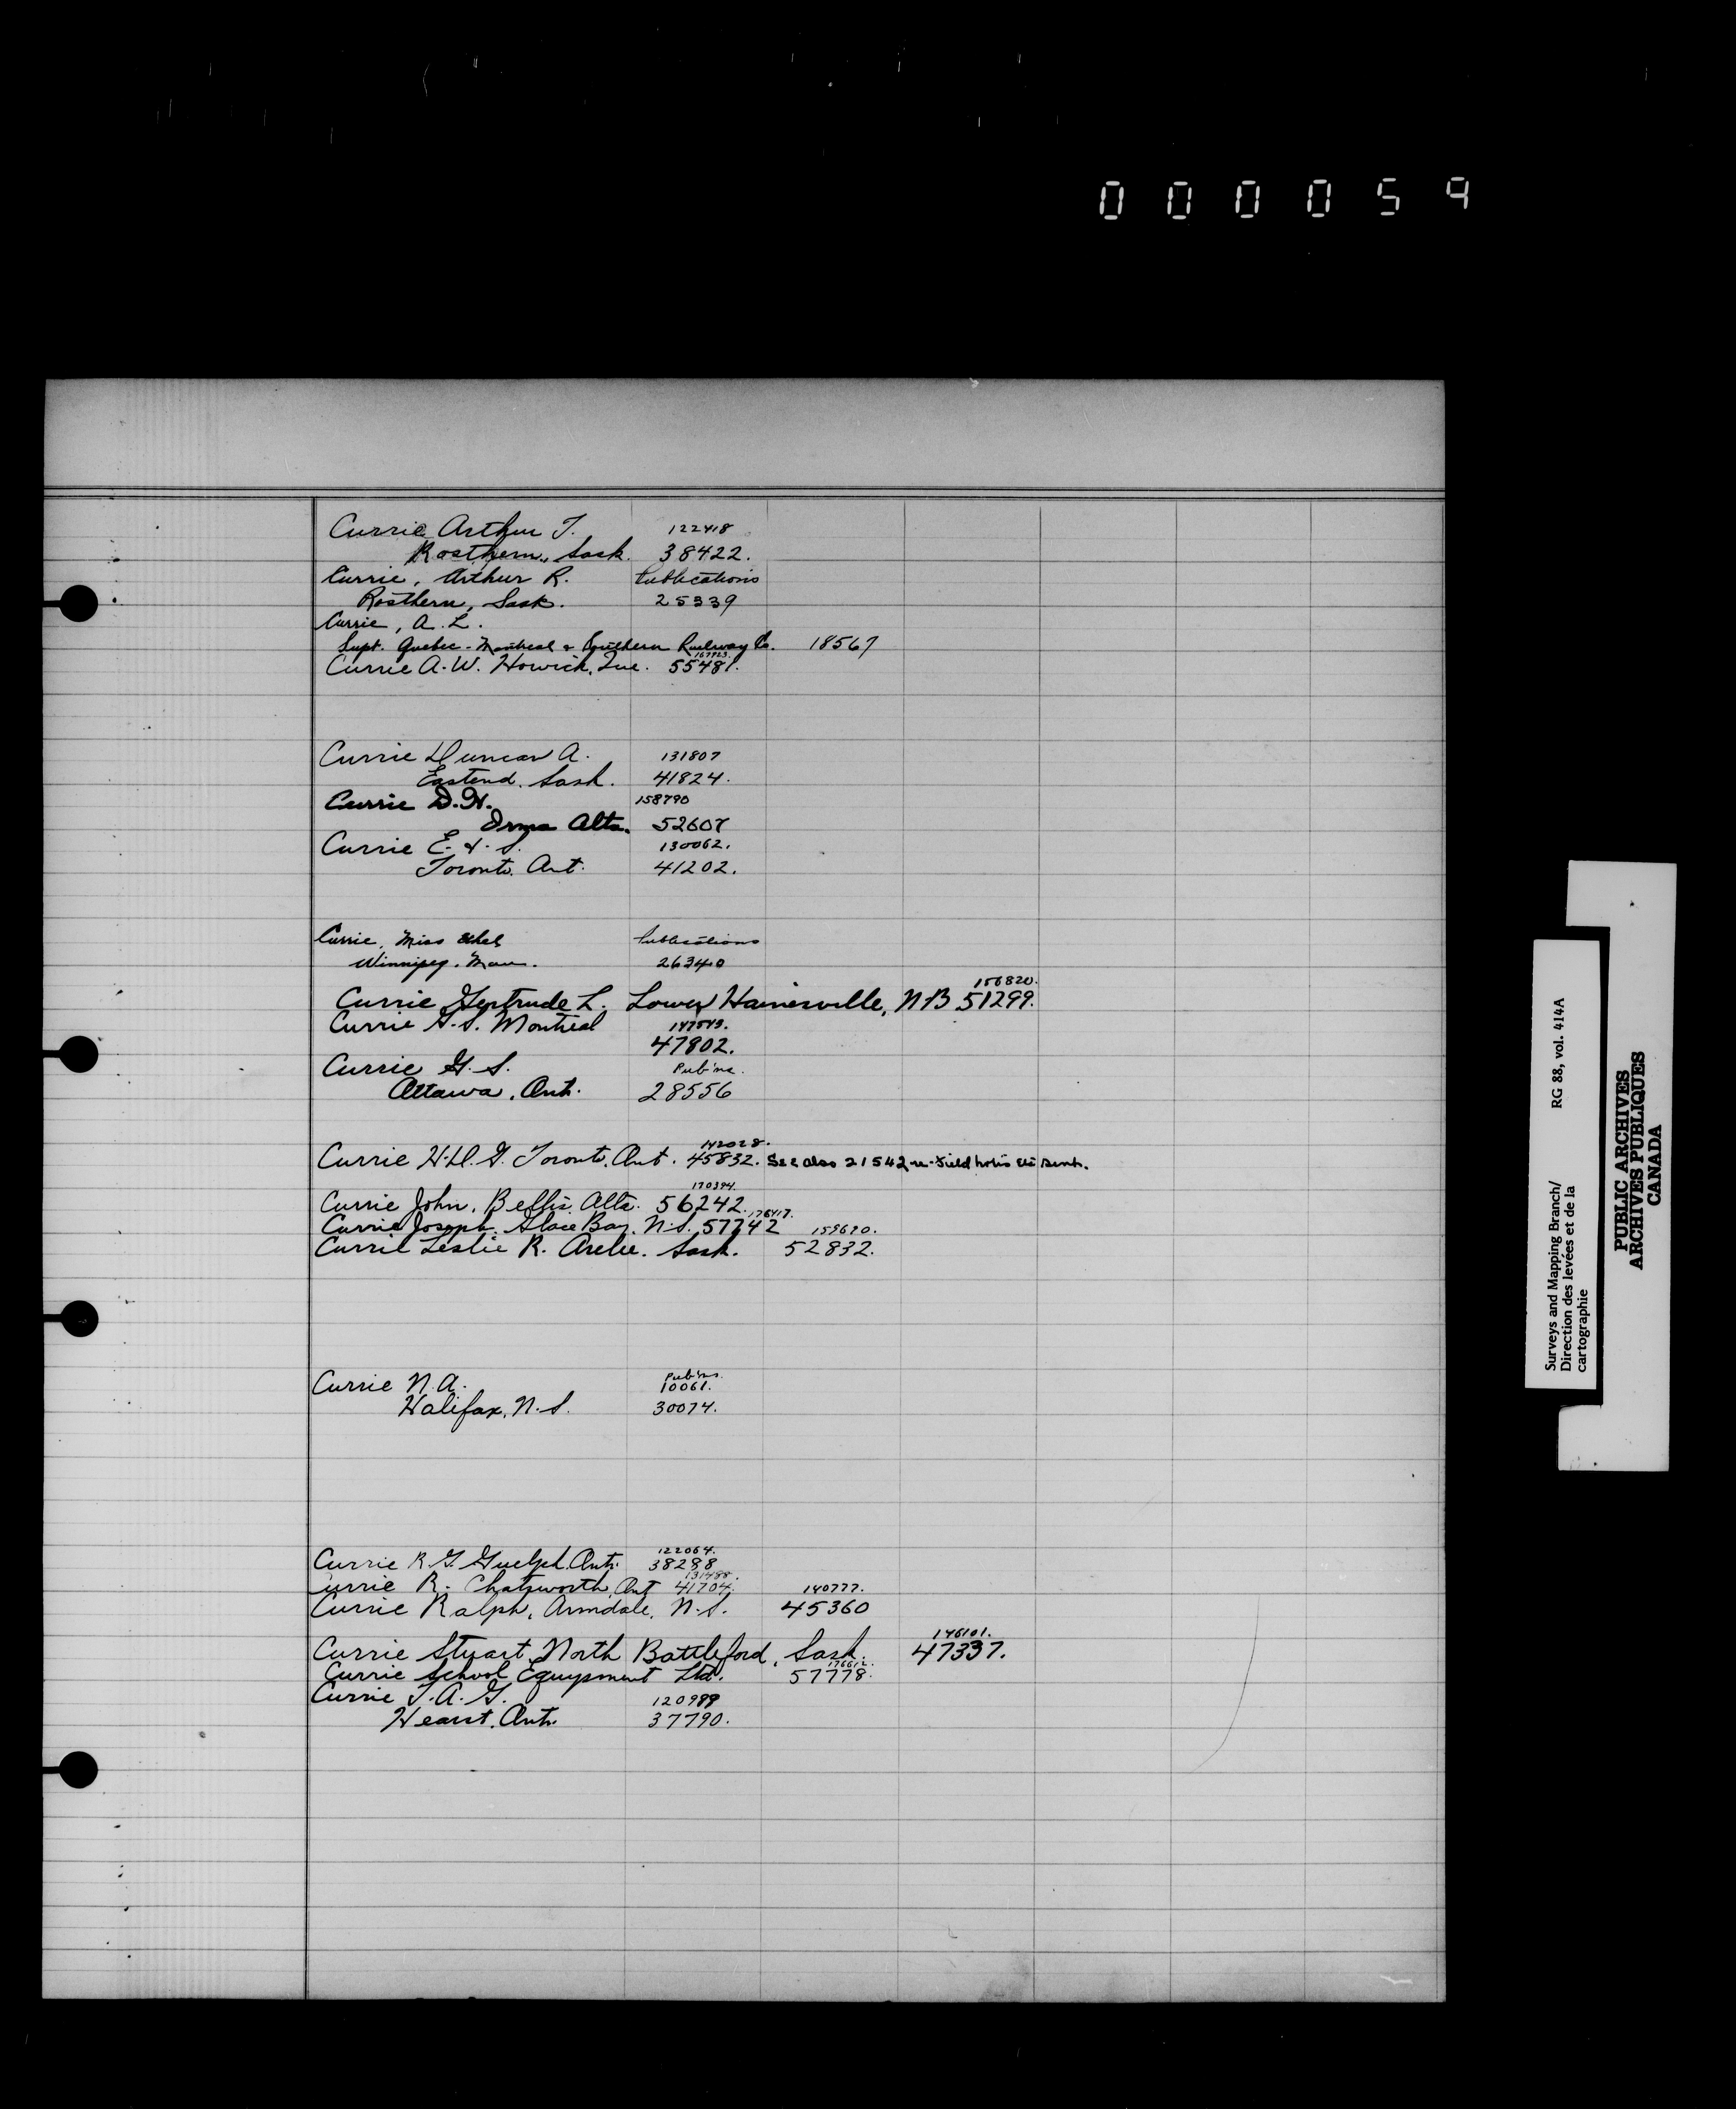 000059
Currie Arthur T. 122418
Rosthern, Sask. 38422.
Currie, Arthur R. Publications
Rosthern, Sask. 25339
Currie, A. L.
Supt. Quebec-Montreal & Southern Railway Co. 18567
167923.
Currie A. W. Howick, Que. 55481.
Currie Duncan A. 131807
Eastend, Sask. 41824.
Currie D. H. 158790
Irma Alta. 52607
Currie E. & S. 130062.
Toronto, Ont. 41202.
Currie, Miss Ethel Publications
Winnipeg, Man. 26340
156820.
Currie Gertrude L. Lower Hainesville, N B 51299.
Currie G. S. Montreal 147543.
47802.
Currie G. S. Pub'ns.
Ottawa, Ont. 28556
142028.
Currie H. D. G. Toronto, Ont. 45832. See also 21542 re field notes etc sent.
170394.
Currie John, Bellis, Alta. 56242.
176417.
Currie Joseph, Glace Bay, N.S. 57742
159690.
Currie Leslie R. Arelee. Sask. 52832.
Currie N. A. Pub'ns.
10061.
Halifax, N. S. 30074.
122064.
Currie R. G. Guelph, Ont. 38288
131488.
Currie R. Chatsworth, Ont 41704.
140777.
Currie Ralph, Armdale, N. S. 45360
146101.
Currie Stuart, North Battleford, Sask. 47337.
176612.
Currie School Equipment Ltd. 57778.
Currie T. A. G. 120989
Hearst, Ont. 37790.
Surveys and Mapping Branch/ RG 88, vol. 414A
Direction des levées et de la
cartographie
PUBLIC ARCHIVES
ARCHIVES PUBLIQUES
CANADA